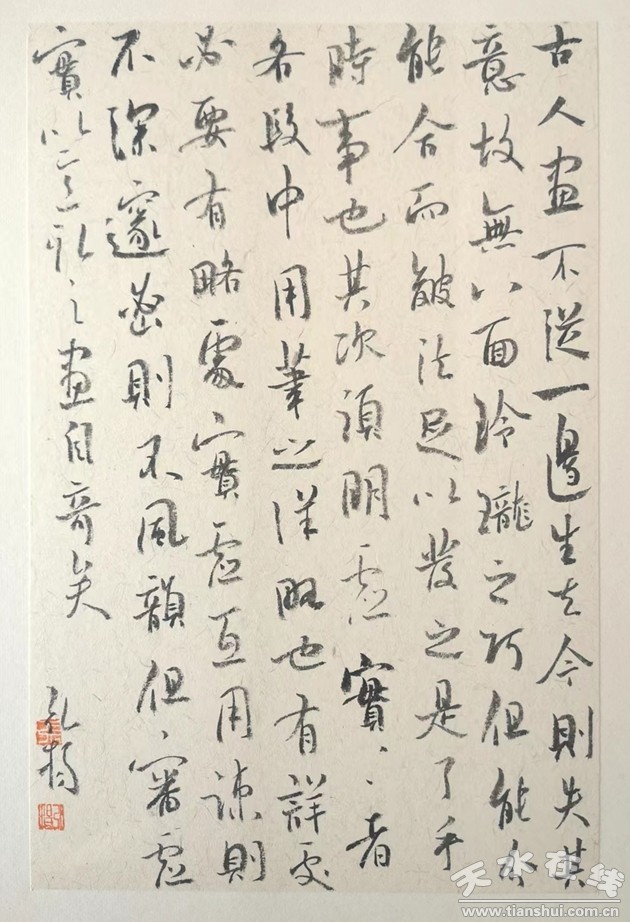 古人畫不從一邊生去今則失其
意故無八面玲瓏之巧但能分
能合而皴法足以發之是了手
時事也其次須明虛實實者
各段中用筆之詳略也有詳處
必要有略處實虛互用疎則
不深邃密則不風韻但審虛
實以意取之畫自奇矣
天水在线
www.tianshui.com.cn